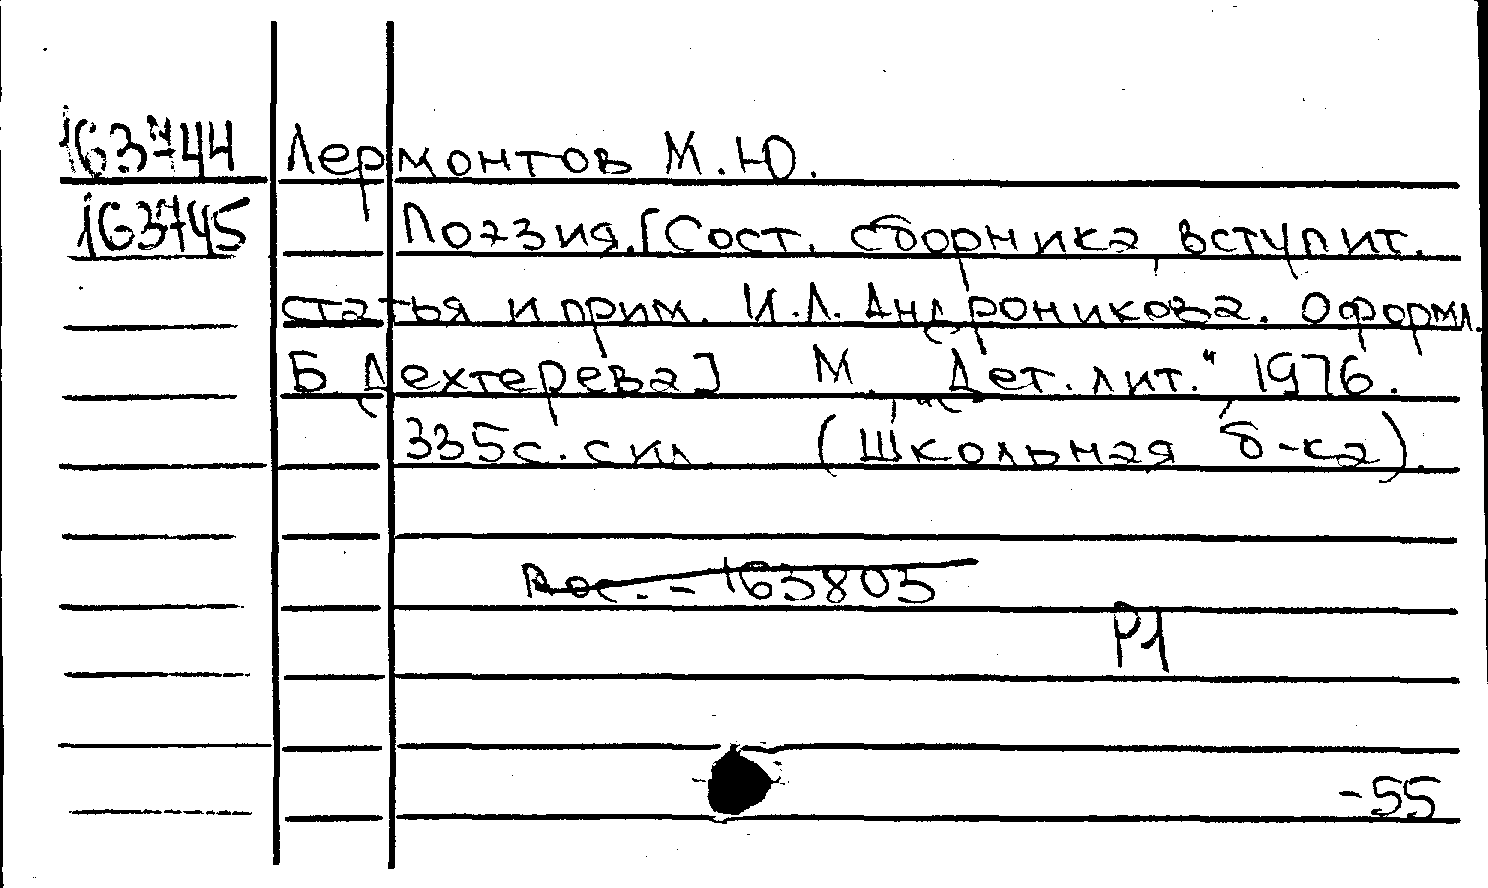 163744 Лермонтов М.Ю.
163745 Поэзия. [Сост. сборника, вступит.
статья и прим. И.Л. Андроникова. Оформл.
Б Дехтерева] М., "Дет. лит.", 1976.
335с. с ил (Школьная б-ка).
Вос. - 163803
Р1
-55